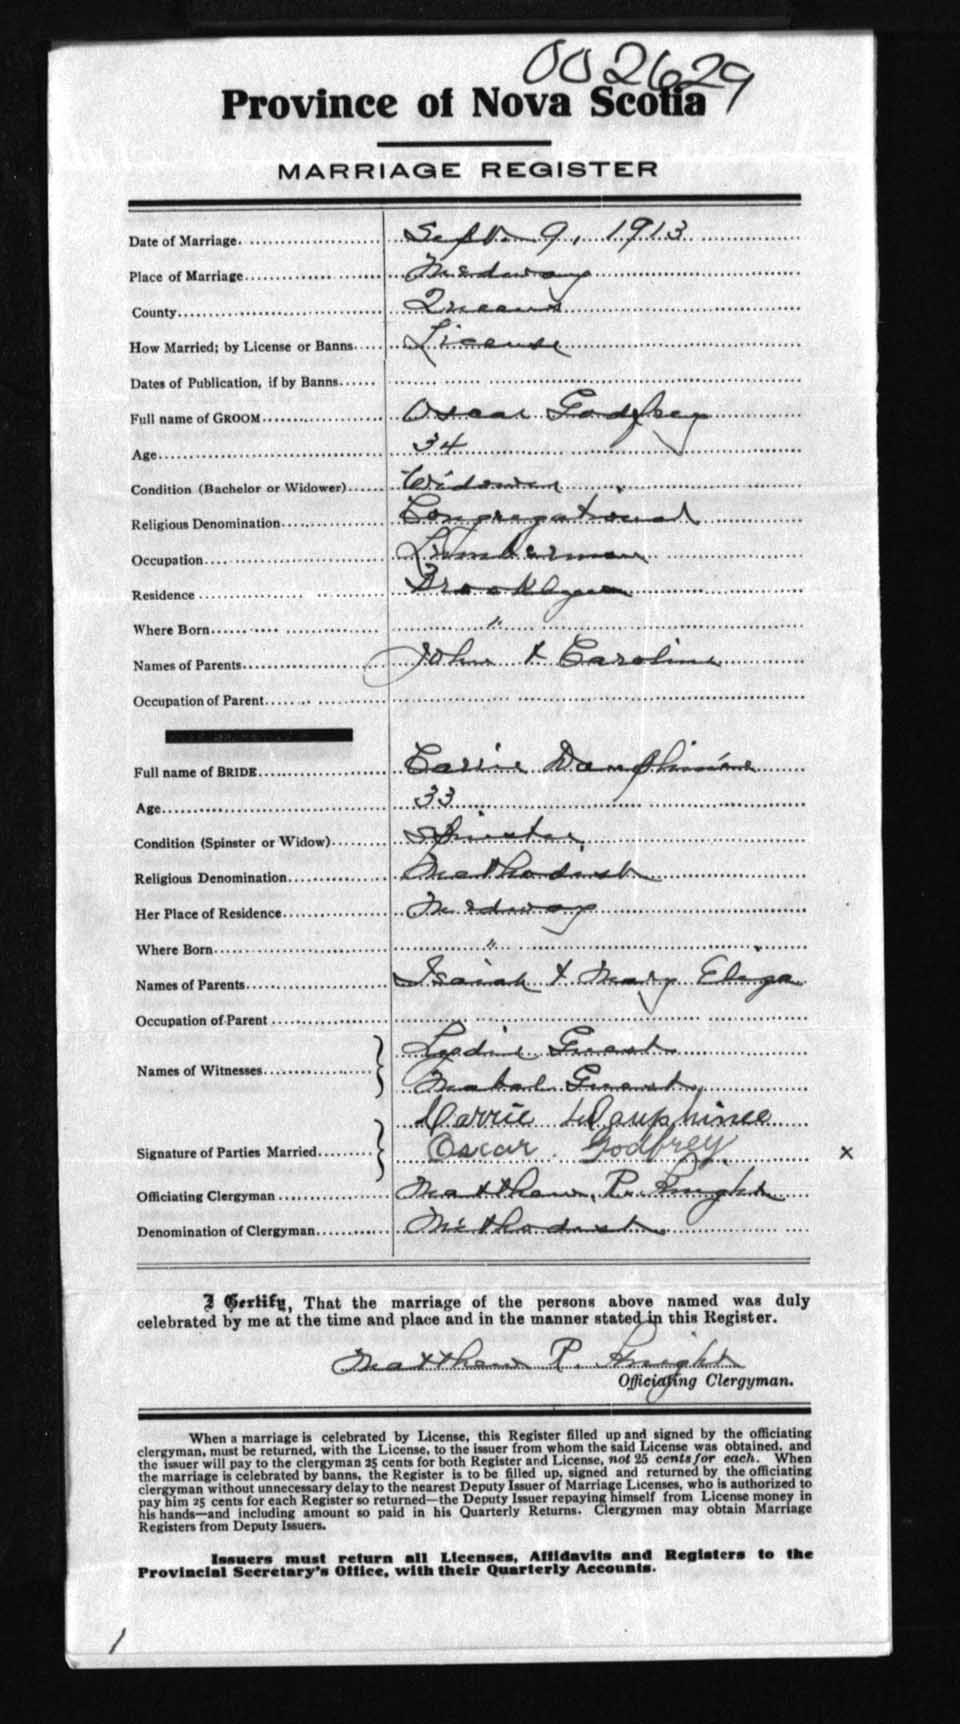 002629
Province of Nova Scotia
MARRIAGE REGISTER
Date of Marriage Sept. 9, 1913
Place of Marriage Medway
County Queens
How Married; by License or Banns License
Dates of Publication, if by Banns
Full name of GROOM Oscar Godfrey
Age 34
Condition (Bachelor or Widower) Widower
Religious Denomination Congregational
Occupation Lumberman
Residence Brooklyn
Where Born "
Names of Parents John & Caroline
Occupation of Parent
Full name of BRIDE Carrie Dauphinée
Age 33
Condition (Spinster or Widow) Spinster
Religious Denomination Methodist
Her Place of Residence Medway
Where Born "
Names of Parents Isaiah & Mary Eliza
Occupation of Parent
Lydia Guest
Names of Witnesses
Mabel Guest
Carrie Dauphinee
Signature of Parties Married Oscar Godfrey x
Officiating Clergyman Matthew P. Knight
Denomination of Clergyman Methodist
I Certify, That the marriage of the persons above named was duly
celebrated by me at the time and place and in the manner stated in this Register.
Matthew P. Knight
Officiating Clergyman.
When a marriage is celebrated by License, this Register filled up and signed by the officiating
clergyman, must be returned, with the License, to the issuer from whom the said License was obtained, and
the issuer will pay to the clergyman 25 cents for both Register and License, not 25 cents for each. When
the marriage is celebrated by banns, the Register is to be filled up, signed and returned by the officiating
clergyman without unnecessary delay to the nearest Deputy Issuer of Marriage Licenses, who is authorized to
pay him 25 cents for each Register so returned—the Deputy Issuer repaying himself from License money in
his hands—and including amount so paid in his Quarterly Returns. Clergymen may obtain Marriage
Registers from Deputy Issuers.
Issuers must return all Licenses, Affidavits and Registers to the
Provincial Secretary's Office, with their Quarterly Accounts.
1